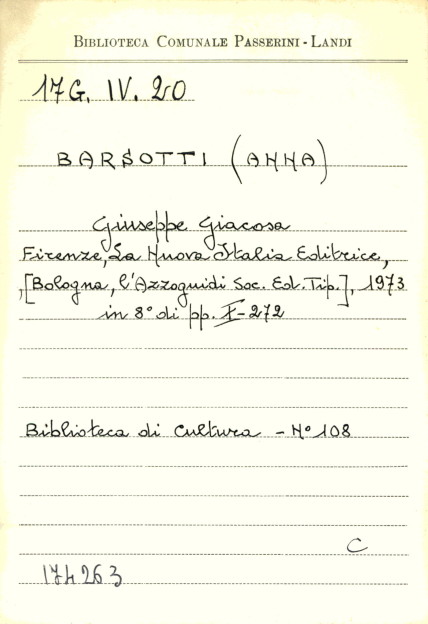 BIBLIOTECA COMUNALE PASSERINI - LANDI
17G. IV. 20
BARSOTTI (ANNA)
Giuseppe Giacosa
Firenze, La Nuova Italia Editrice,
[Bologna, l'Azzoguidi Soc. Ed. Tip.], 1973
in 8° di pp. X-272
Biblioteca di Cultura - N° 108
C
174263